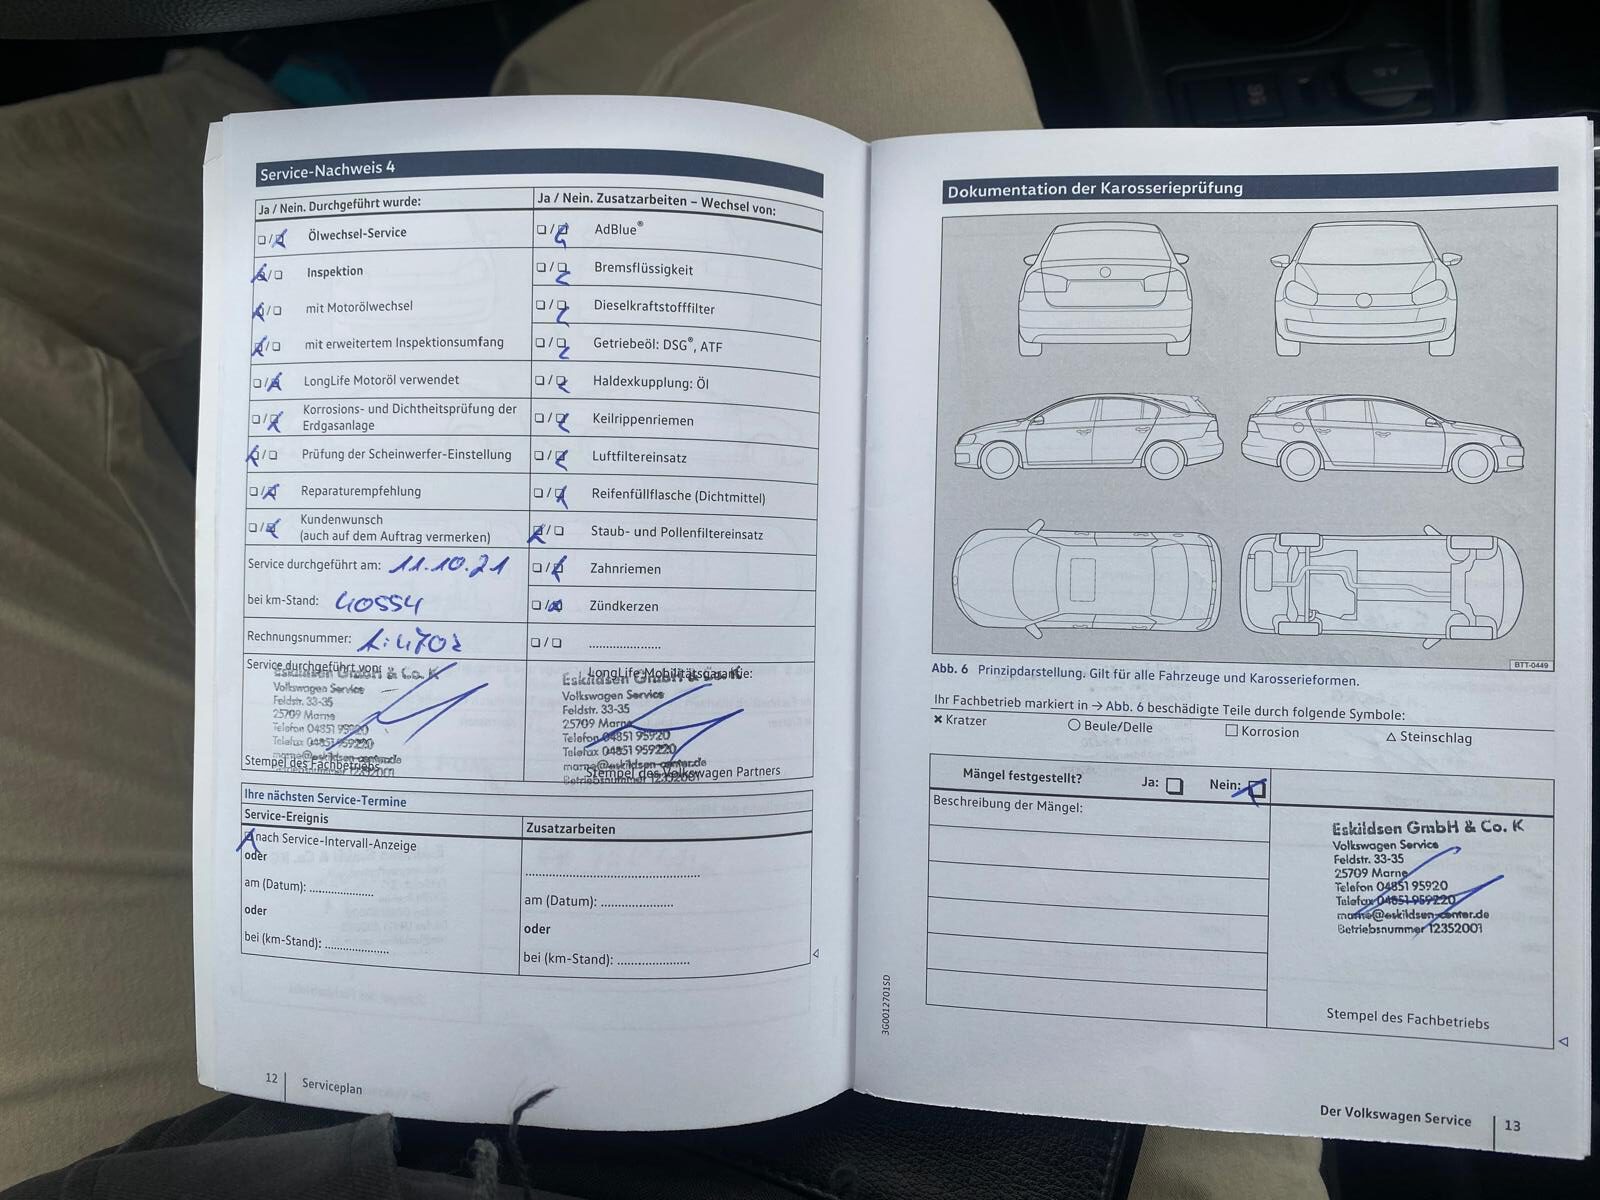 Service-Nachweis 4
Ja / Nein. Durchgeführt wurde:
Ja / Nein. Zusatzarbeiten – Wechsel von:
Ölwechsel-Service
AdBlue®
Inspektion
Bremsflüssigkeit
mit Motorölwechsel
Dieselkraftstofffilter
mit erweitertem Inspektionsumfang
Getriebeöl: DSG®, ATF
LongLife Motoröl verwendet
Haldexkupplung: Öl
Korrosions- und Dichtheitsprüfung der
Erdgasanlage
Keilrippenriemen
Prüfung der Scheinwerfer-Einstellung
Luftfiltereinsatz
Reparaturempfehlung
Reifenfüllflasche (Dichtmittel)
Kundenwunsch
(auch auf dem Auftrag vermerken)
Staub- und Pollenfiltereinsatz
Service durchgeführt am: 11.10.21
Zahnriemen
bei km-Stand: 40554
Zündkerzen
Rechnungsnummer:
Service durchgeführt von:
Eskildsen GmbH & Co. K
Volkswagen Service
Feldstr. 33-35
25709 Marne
Telefon 04851 95920
Telefax 04851 959220
marne@eskildsen-center.de
Betriebsnummer 12352001
Stempel des Fachbetriebs
LongLife Mobilitätsgarantie:
Eskildsen GmbH & Co. K
Volkswagen Service
Feldstr. 33-35
25709 Marne
Telefon 04851 95920
Telefax 04851 959220
marne@eskildsen-center.de
Betriebsnummer 12352001
Stempel des Volkswagen Partners
Ihre nächsten Service-Termine
Service-Ereignis
Zusatzarbeiten
nach Service-Intervall-Anzeige
oder
am (Datum): ..................
oder
bei (km-Stand): ..................
am (Datum): ....................
oder
bei (km-Stand): ....................
12
Serviceplan
Dokumentation der Karosserieprüfung
BTT-0449
Abb. 6 Prinzipdarstellung. Gilt für alle Fahrzeuge und Karosserieformen.
Ihr Fachbetrieb markiert in → Abb. 6 beschädigte Teile durch folgende Symbole:
✖ Kratzer
○ Beule/Delle
□ Korrosion
△ Steinschlag
Mängel festgestellt?
Ja:
Nein:
Beschreibung der Mängel:
Eskildsen GmbH & Co. K
Volkswagen Service
Feldstr. 33-35
25709 Marne
Telefon 04851 95920
Telefax 04851 959220
marne@eskildsen-center.de
Betriebsnummer 12352001
Stempel des Fachbetriebs
3G0012701SD
Der Volkswagen Service
13